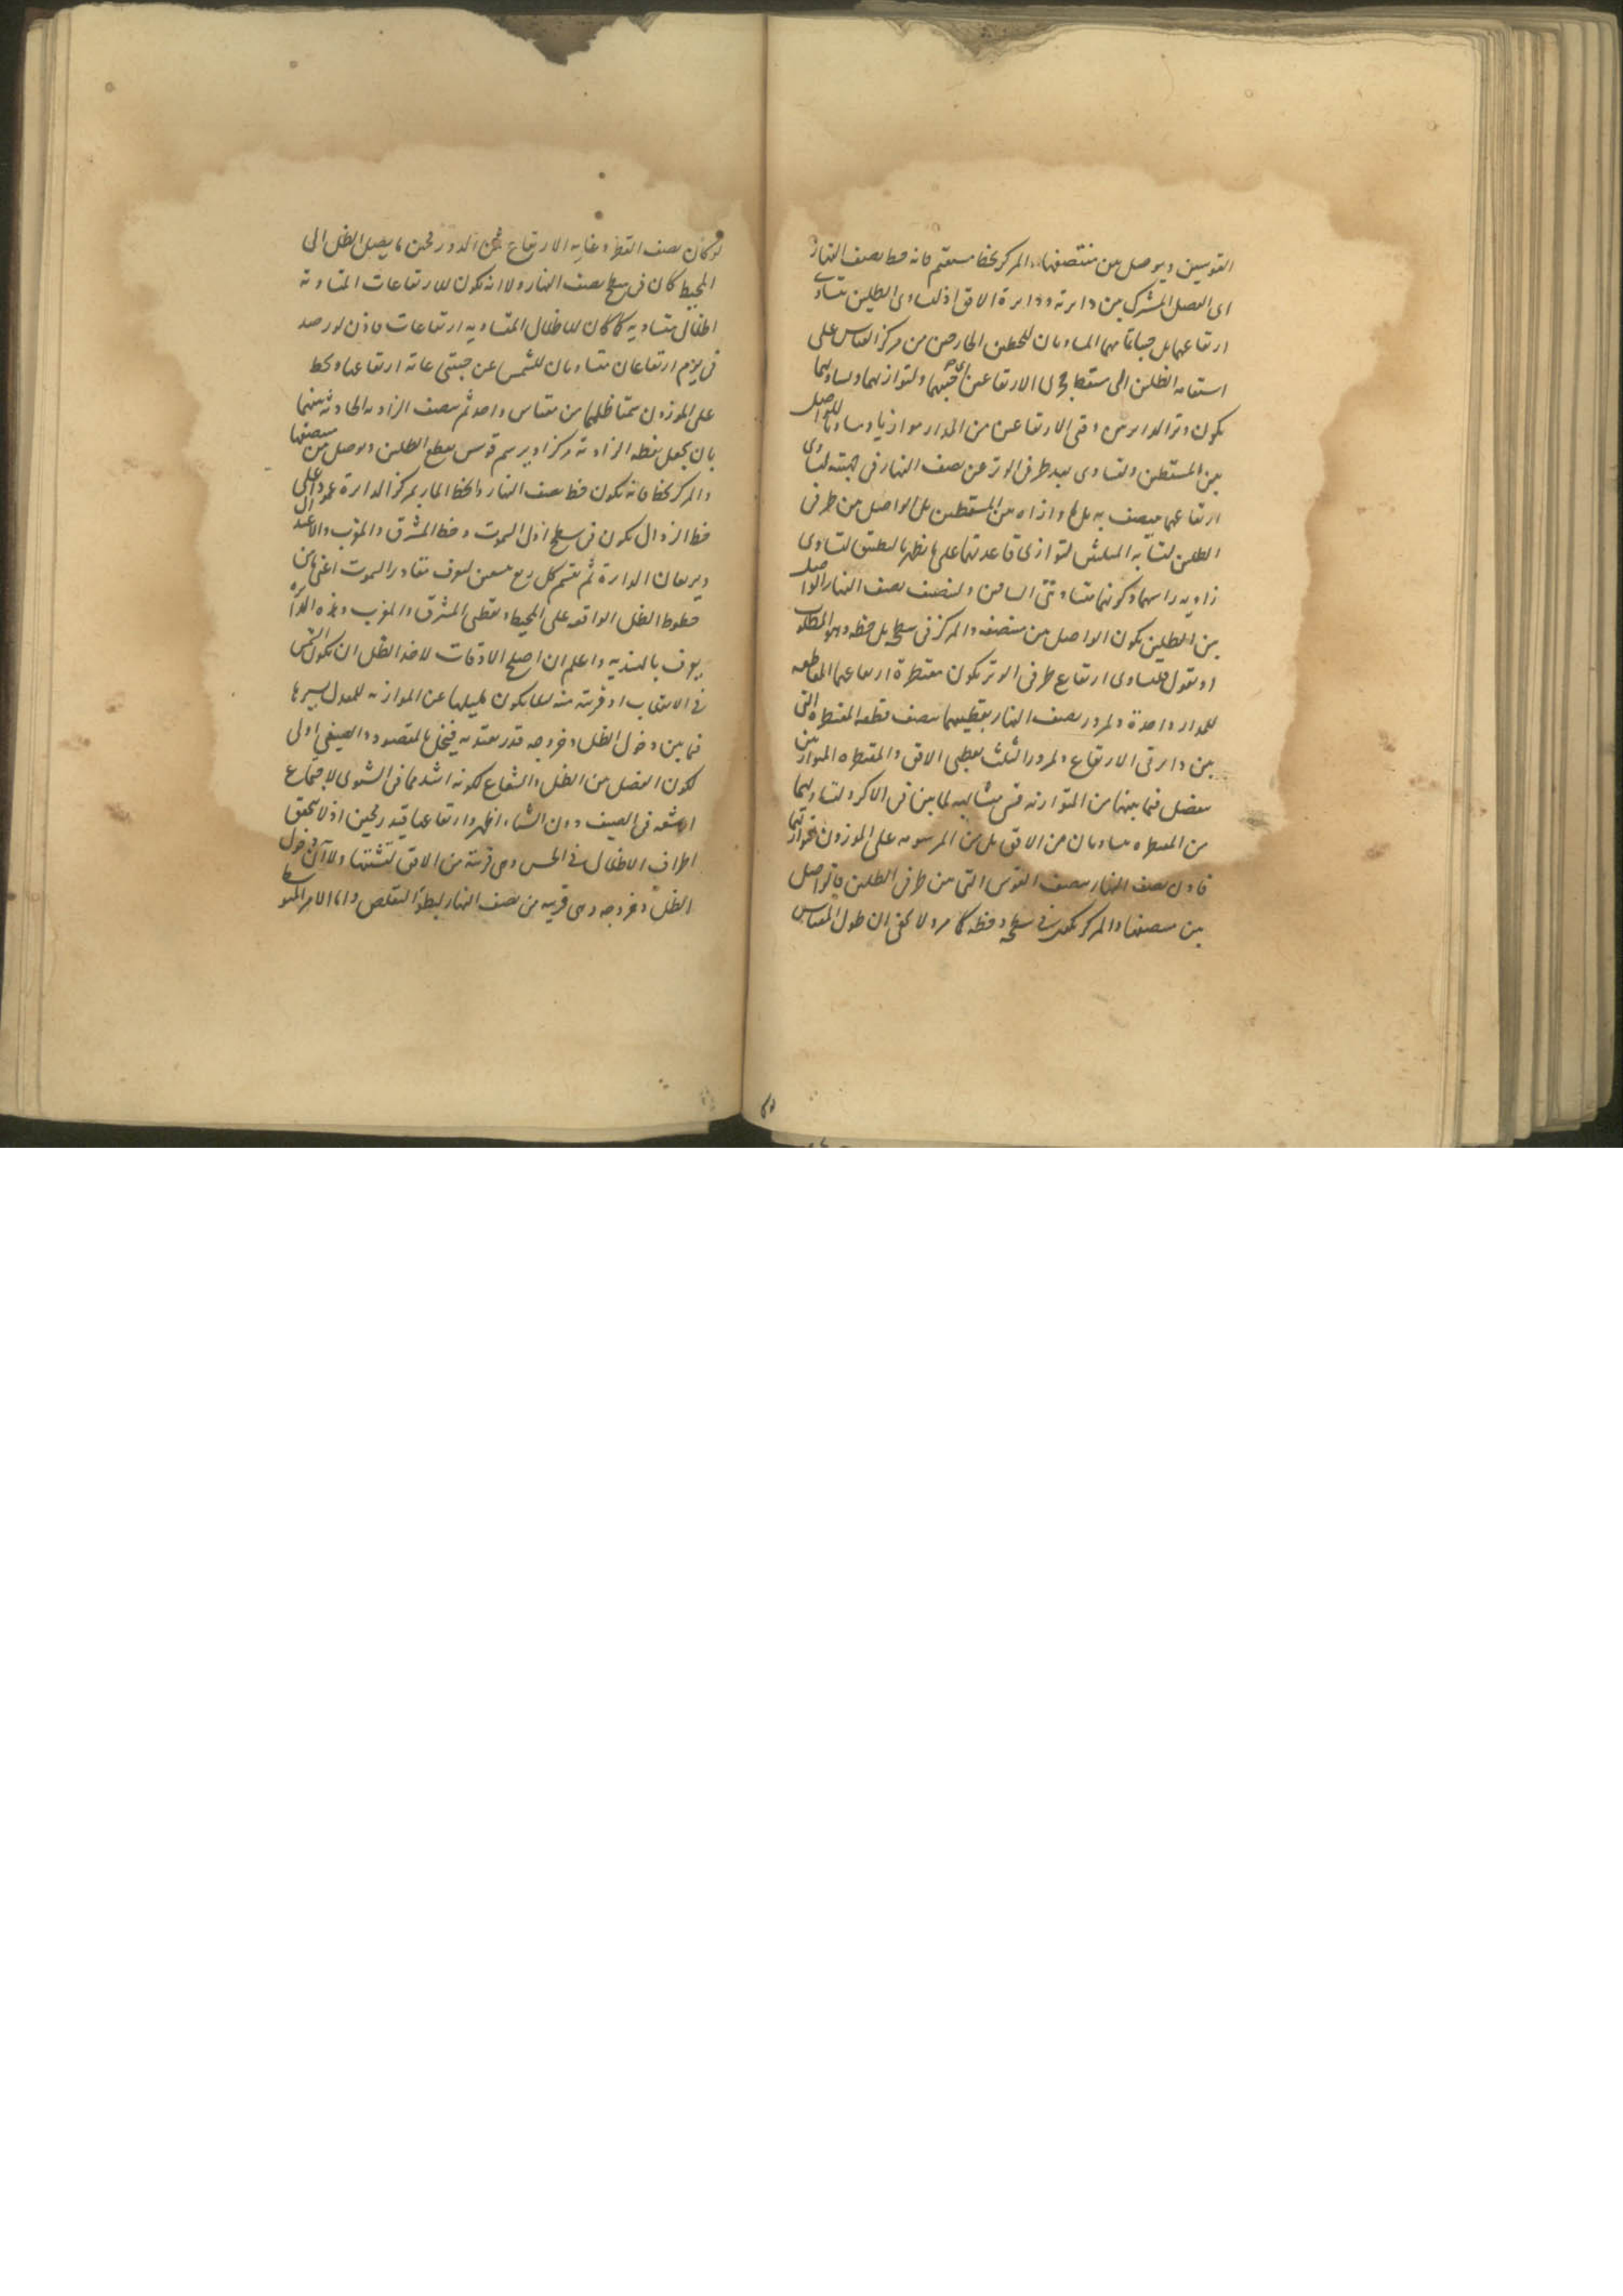 القوسين ويوصل بين منتصفها والمركز بخط مستقيم فانه خط نصف النهار
اى الفصل المشترك بين دائرته ودائرة الافق اذ لتساوى الظلين يتساوى
ارتفاعهما بل جيباتمامهما المساويان للخطين الخارجين من مركز المقياس على
استقامة الظلين الى مسقط حجرى الارتفاعين اى جيبيهما ولتوازيهما وتساويهما
يكون وتر الدائرتين وقتى الارتفاعين من المدار موازيا ومساويا للواصل
بين المسقطين ولتساوى بعد طرفى الوتر عن نصف النهار فى جهتيه لتساوى
ارتفاعهما ينصف به بل ما وازاه من المسقطين بل الواصل من طرفى
الظلين لتشابه المثلثين لتوازى قاعدتهما على ما يظهر بالتطبيق لتساوى
زاويه راسهما وكونهما متساويتى الساقين ولتنصف نصف النهار الواصل
بين الظلين يكون الواصل من منتصفه والمركز فى سطحه بل خطه وهو المطلوب
او نقول لتساوى ارتفاع طرفى الوتر يكون مقنطرة ارتفاعهما المقاطعه
للمدار واحدة ولمرور نصف النهار بقطبيهما ينصف قطعه المقنطره التى
بين دائرتى الارتفاع ولمرور الثلث بقطبى الافق والمقنطره الموازيين
يفصل فيما بينهما من المتوازيه قسى متشابهه لما بين فى الاكر ولتساويهما
من المقنطره متساويان من الافق بل من المرسومه على الموزون لتوازيهما
فاذن نصف النهار ينصف القوس التى بين طرفى الظلين فالواصل
بين منتصفها والمركز يكون فى سطحه وخطه كما مر ولا يخفى ان طول المقياس
لو كان نصف القطر وغايه الارتفاع ثمن الدور فحين ما يصل الظل الى
المحيط كان فى سطح نصف النهار ولانه يكون للارتفاعات المتساوية
اظلال متساويه كما كان للاظلال المتساويه ارتفاعات فاذن لو رصد
فى يوم ارتفاعان متساويان للشمس عن جنبتى غاية ارتفاعها وخط
على الموزون سمتا ظليهما من مقياس واحد ثم ينصف الزاويه الحادثه بينهما
بان يجعل نقطه الزاوية مركزا ويرسم قوس يقطع الظلين ويوصل بين منتصفها
والمركز بخط فانه يكون خط نصف النهار والخط المار بمركز الدائرة عمودا على
خط الزوال يكون فى سطح اول السموت وخط المشرق والمغرب والاعتدال
ويربعان الدائرة ثم يقسم كل ربع تسعين ليعرف مقادير السموت اعنى ما بين
خطوط الظل الواقعه على المحيط ونقطتى المشرق والمغرب وهذه الدائره
يعرف بالهنديه واعلم ان اصلح الاوقات لاخذ الظل ان يكون الشمس
فى الانقلاب او قريبة منه لئلا يكون لميلها عن الموازنه للمعدل بسيرها
فيما بين دخول الظل وخروجه قدر يعتد به فيخل بالمقصود والصيفى اولى
لكون الفصل بين الظل والشعاع لكونه اشد مما فى الشتوى لاجتماع
الاشعه فى الصيف دون الشتاء اظهر وارتفاعها قيد رمحين اذ لا يتحقق
اطراف الاظلال فى الحس وهى قريبة من الافق لتشتتها ولا آن دخول
الظل وخروجه وهى قريبه من نصف النهار لبطؤ التقلص واما الامر المتوسط